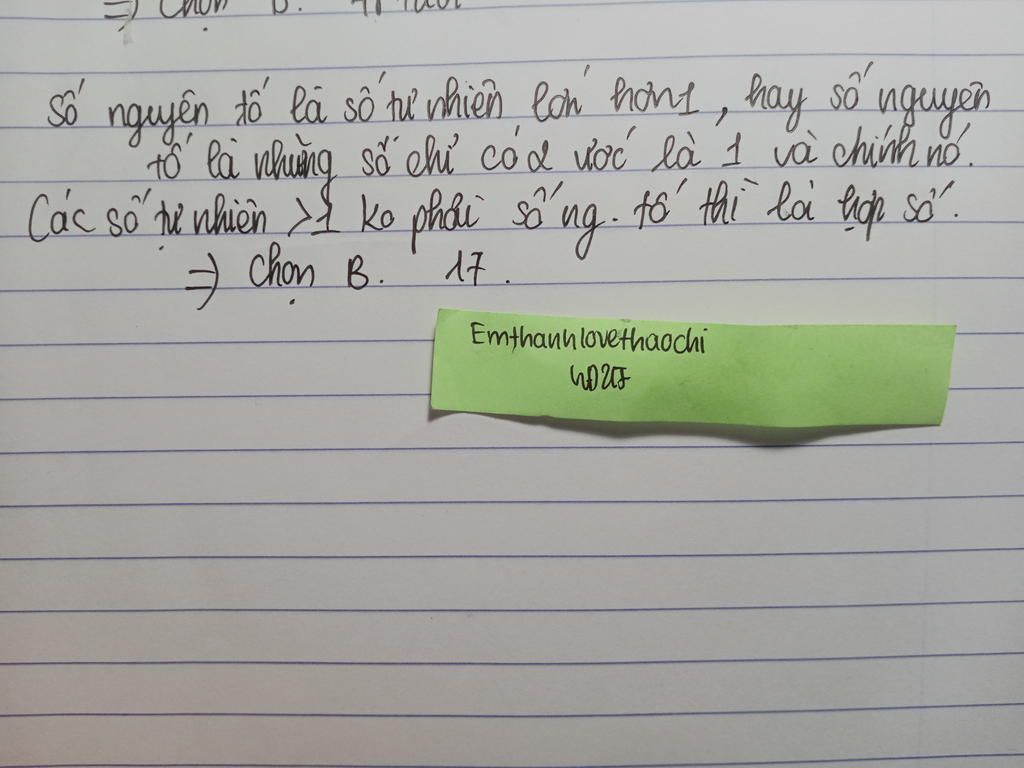 =) Chọn B.
số nguyên tố là số tự nhiên lớn hơn 1, hay số nguyên
tố là những số chỉ có 2 ước là 1 và chính nó.
Các số tự nhiên >1 ko phải số ng. tố thì là hợp số.
=) Chọn B. 17.
Emthanhlovethaochi